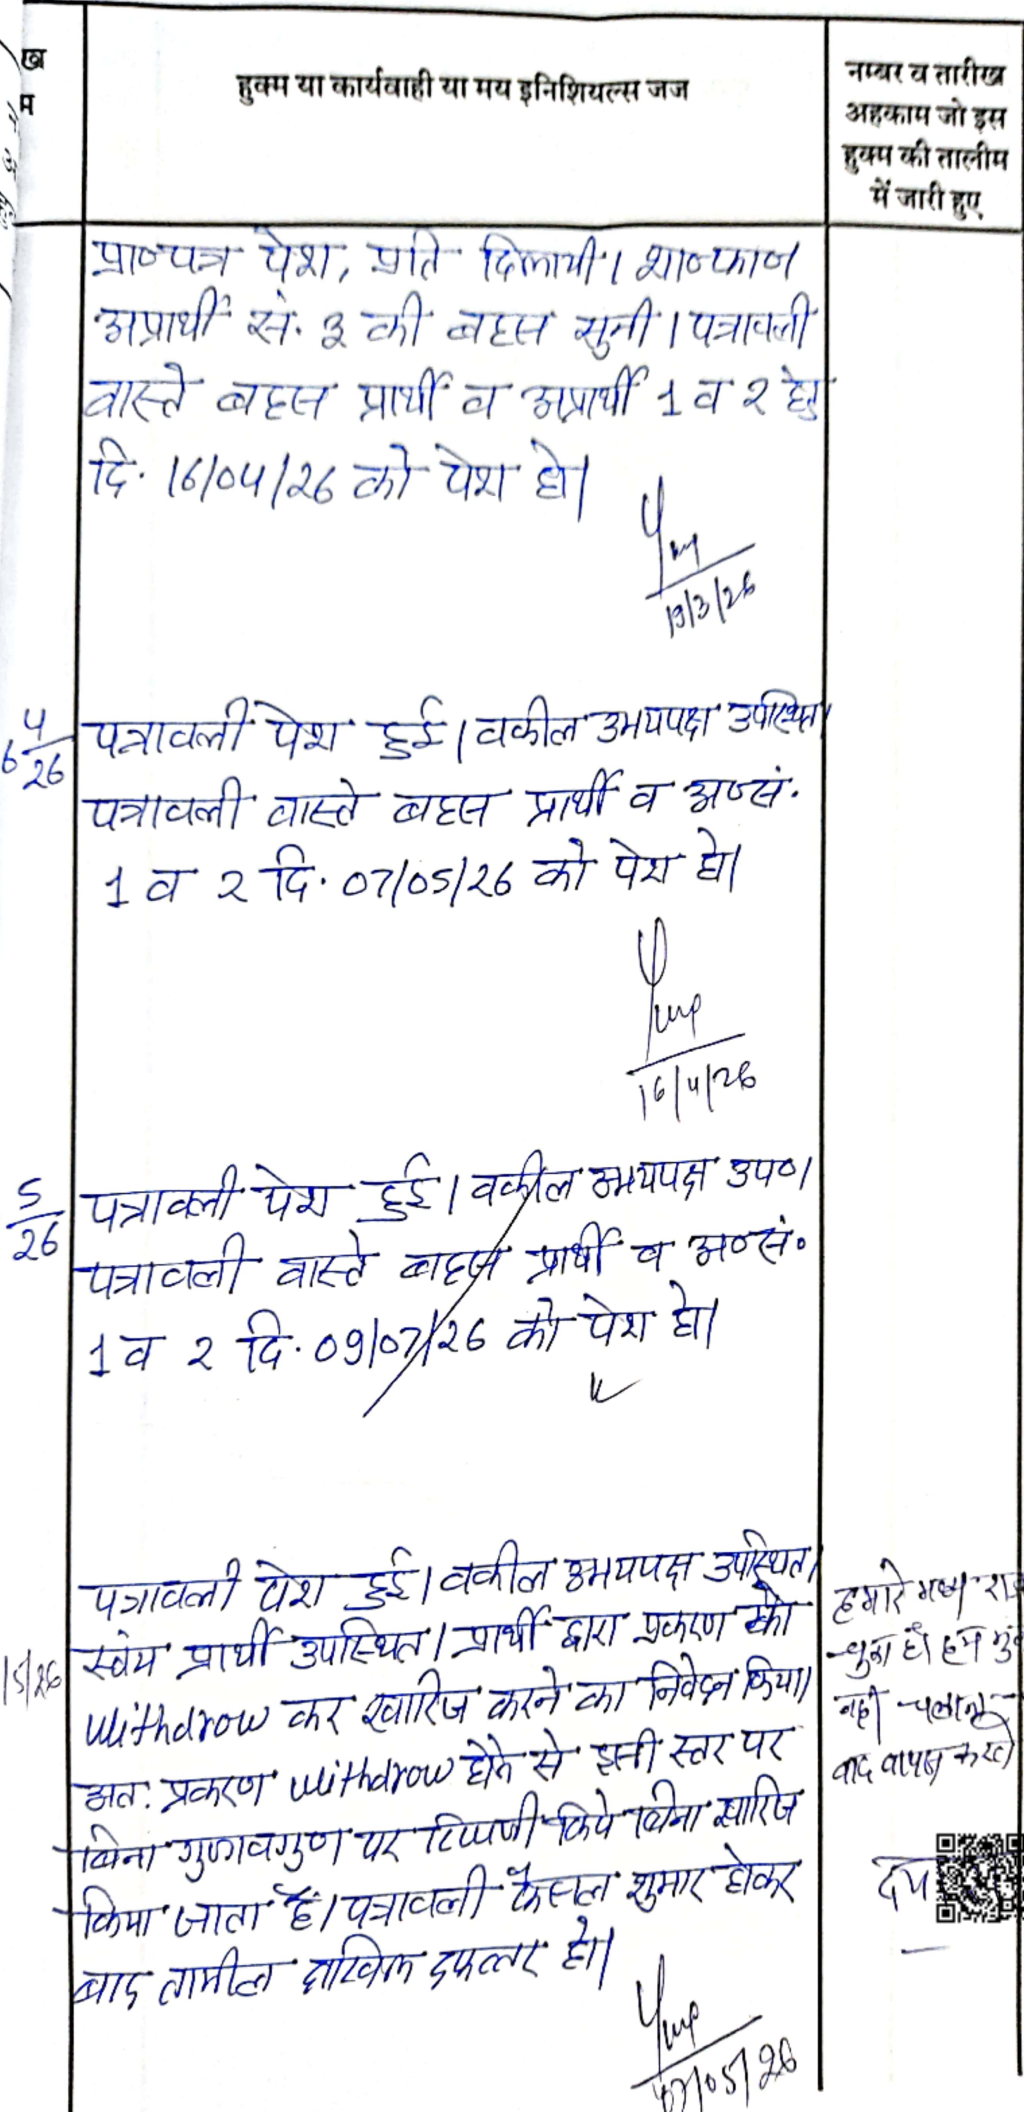 ख
म
हुक्म या कार्यवाही या मय इनिशियल्स जज
नम्बर व तारीख
अहकाम जो इस
हुक्म की तालीम
में जारी हुए
प्रा०पत्र पेश, प्रति दिलायी।
अप्रार्थी सं. 3 की बहस सुनी। पत्रावली
वास्ते बहस प्रार्थी व अप्रार्थी 1 व 2 हेतु
दि. 16/04/26 को पेश हो।
19/3/26
4/26
पत्रावली पेश हुई। वकील उभयपक्ष उपस्थित।
पत्रावली वास्ते बहस प्रार्थी व अ०सं.
1 व 2 दि. 07/05/26 को पेश हो।
16/4/26
5/26
पत्रावली पेश हुई। वकील उभयपक्ष उप०।
पत्रावली वास्ते बहस प्रार्थी व अ०सं०
1 व 2 दि. 09/07/26 को पेश हो।
पत्रावली पेश हुई। वकील उभयपक्ष उपस्थित।
स्वंय प्रार्थी उपस्थित। प्रार्थी द्वारा प्रकरण को
withdrow कर खारिज करने का निवेदन किया।
अत: प्रकरण withdrow होने से इसी स्तर पर
बिना गुणावगुण पर टिप्पणी किये बिना खारिज
किया जाता है। पत्रावली फैसल शुमार होकर
बाद तामील दाखिल दफ्तर हो।
07/05/26
5/26
हमारे मध्य
चुका है। हम
नही चलाना
वाद वापस करते